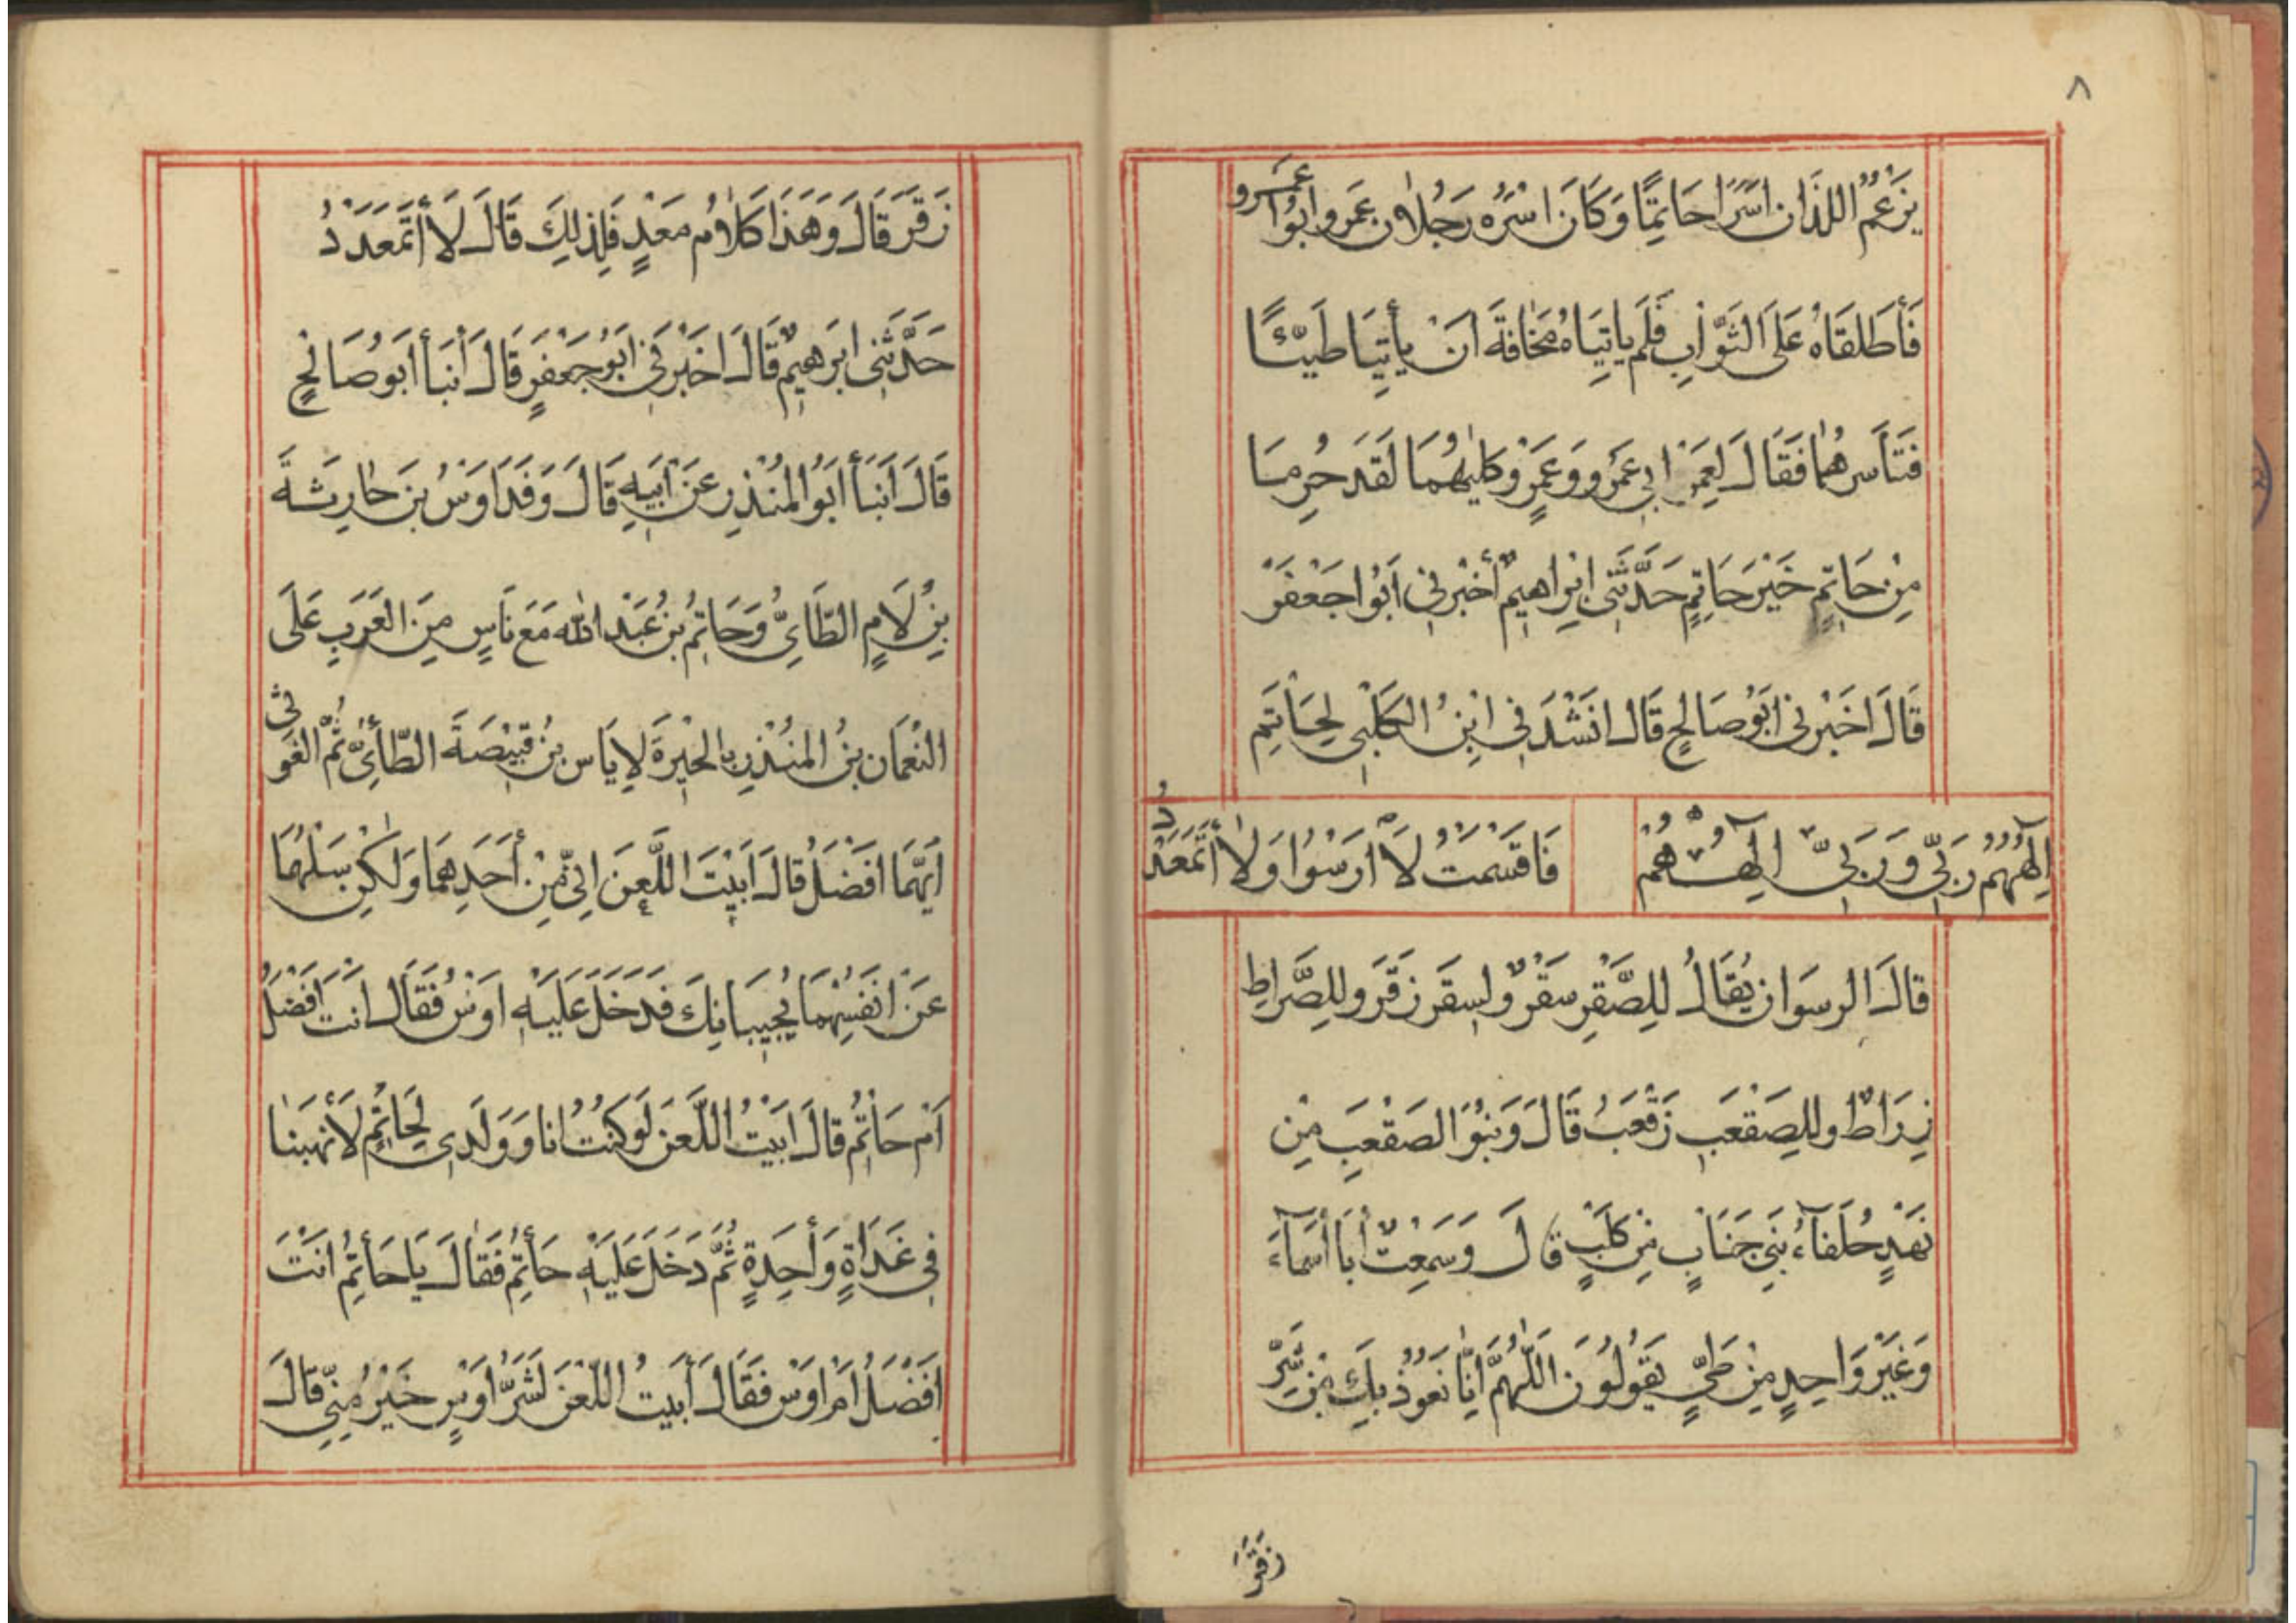 ٨
يَزْعُمُ اللذَان اسَّرَا حَاتِمًا وَكَانَ اسَرَهُ رَجُلَان عَمرو ابوُا عمرو
فَأطَلقَاهُ عَلىَ الثوَّابِ فَلَم ياتِيَاهُ مَخَافَةَ انَ يأتِيَا طَيّئًا
فتَأسرهُما فَقَالَ لِعَمرَ ابي عَمرَو وَعَمرٍو كِليَهُمَا لَقَد حُرِمَا
مِنْ حَاتِمٍ خَيْرَ حَاتِمٍ حَدَّثَنِى ابْراهيمُ أخْبرني اَبُوا جَعْفَرَ
قَالَ اخَبْرني ابَوُ صَالحٍ قَال انَشْدَني ابْنُ الكَلْبِى لِحَاتَمِ
اِلَهُهُمُ رَبّي وَرَبىّ الَهُهُمُ فَاقسَمتُ لَا اَرسُوا وَلَا أتَمَعَدَدُ
قَالَ الرسوَان يُقَالُ للِصَّقرِ سَقْرُ ولسِقَر زَقَرَ وللِصَّراطِ
زِرَاطُ وللِصَقْعَبِ زَقْعَبُ قَالَ وَبَنُوَا الصَقْعَبِ مِن
نَهْدٍ حُلَفآءُ بَنِي جَنَابٍ مِن كَلْبٍ قَالَ وَسَمِعْتُ أبَا أَسمَآءَ
وَغَيْرَ وَاحِدٍ مِنْ طَيٍّ يَقوُلُوُنَ اللّهُمَّ اِنّا نَعَوُذُ بِكَ مِن شَرِّ
زقَرَ
زَقَرَ قَالَ وَهَذَا كَلَامُ مَعَدٍ فَلِذلِكَ قَالَ لَا أتمَعَدَدُ
حَدَّثَنِى ابرَهيمُ قَالَ اخَبْرَني ابَوُ جَعْفرٍ قَالَ أنبَأ ابَوُ صَالحٍ
قَالَ اَنبَأ ابَوُ المُنْذِر عَن اَبيَهِ قَالَ وَفدَ اوَسُ بنَ حَارِثةَ
بنِ لَامٍ الطَّايِّ وَحَاتِمُ بنُ عَبَدْ الله مَعَ نَاسٍ مِنَ العَرَبِ عَلَى
النُعْمَان بنُ المنُذرِ بالحيْرةَ لِايَاس بنُ قَبيْصَةَ الطّائىّ ثُمّ الغوَثى
اَيهّمَا افَضْلُ قَالَ ابَيْتَ اللَّعنَ اِنّي مِنْ أحَدِهِمَا وَلكِن سَلْهُمَا
عَنْ انَفسُِهِمَا يُجيبَانِكَ فَدَخَلَ عَلَيهِ اوَسُ فَقَالَ انَتَ افَضَلُ
اَم حَاتمُ قَالَ ابَيْتَ اللَّعنَ لَو كنَتُ انا وَوَلَدى لحَاتمٍ لَأنهبَنَا
في غدَاةٍ وَاحِدةٍ ثُمَّ دَخَلَ عَلَيهِ حَاتمُ فَقَالَ يَا حَاتمُ انَتَ
افَضَلُ امَ اوَس فَقَالَ أبَيتَ اللّعْنَ لَشَرُّ اوَسٍ خَيْرُ مِنّي قَالَ